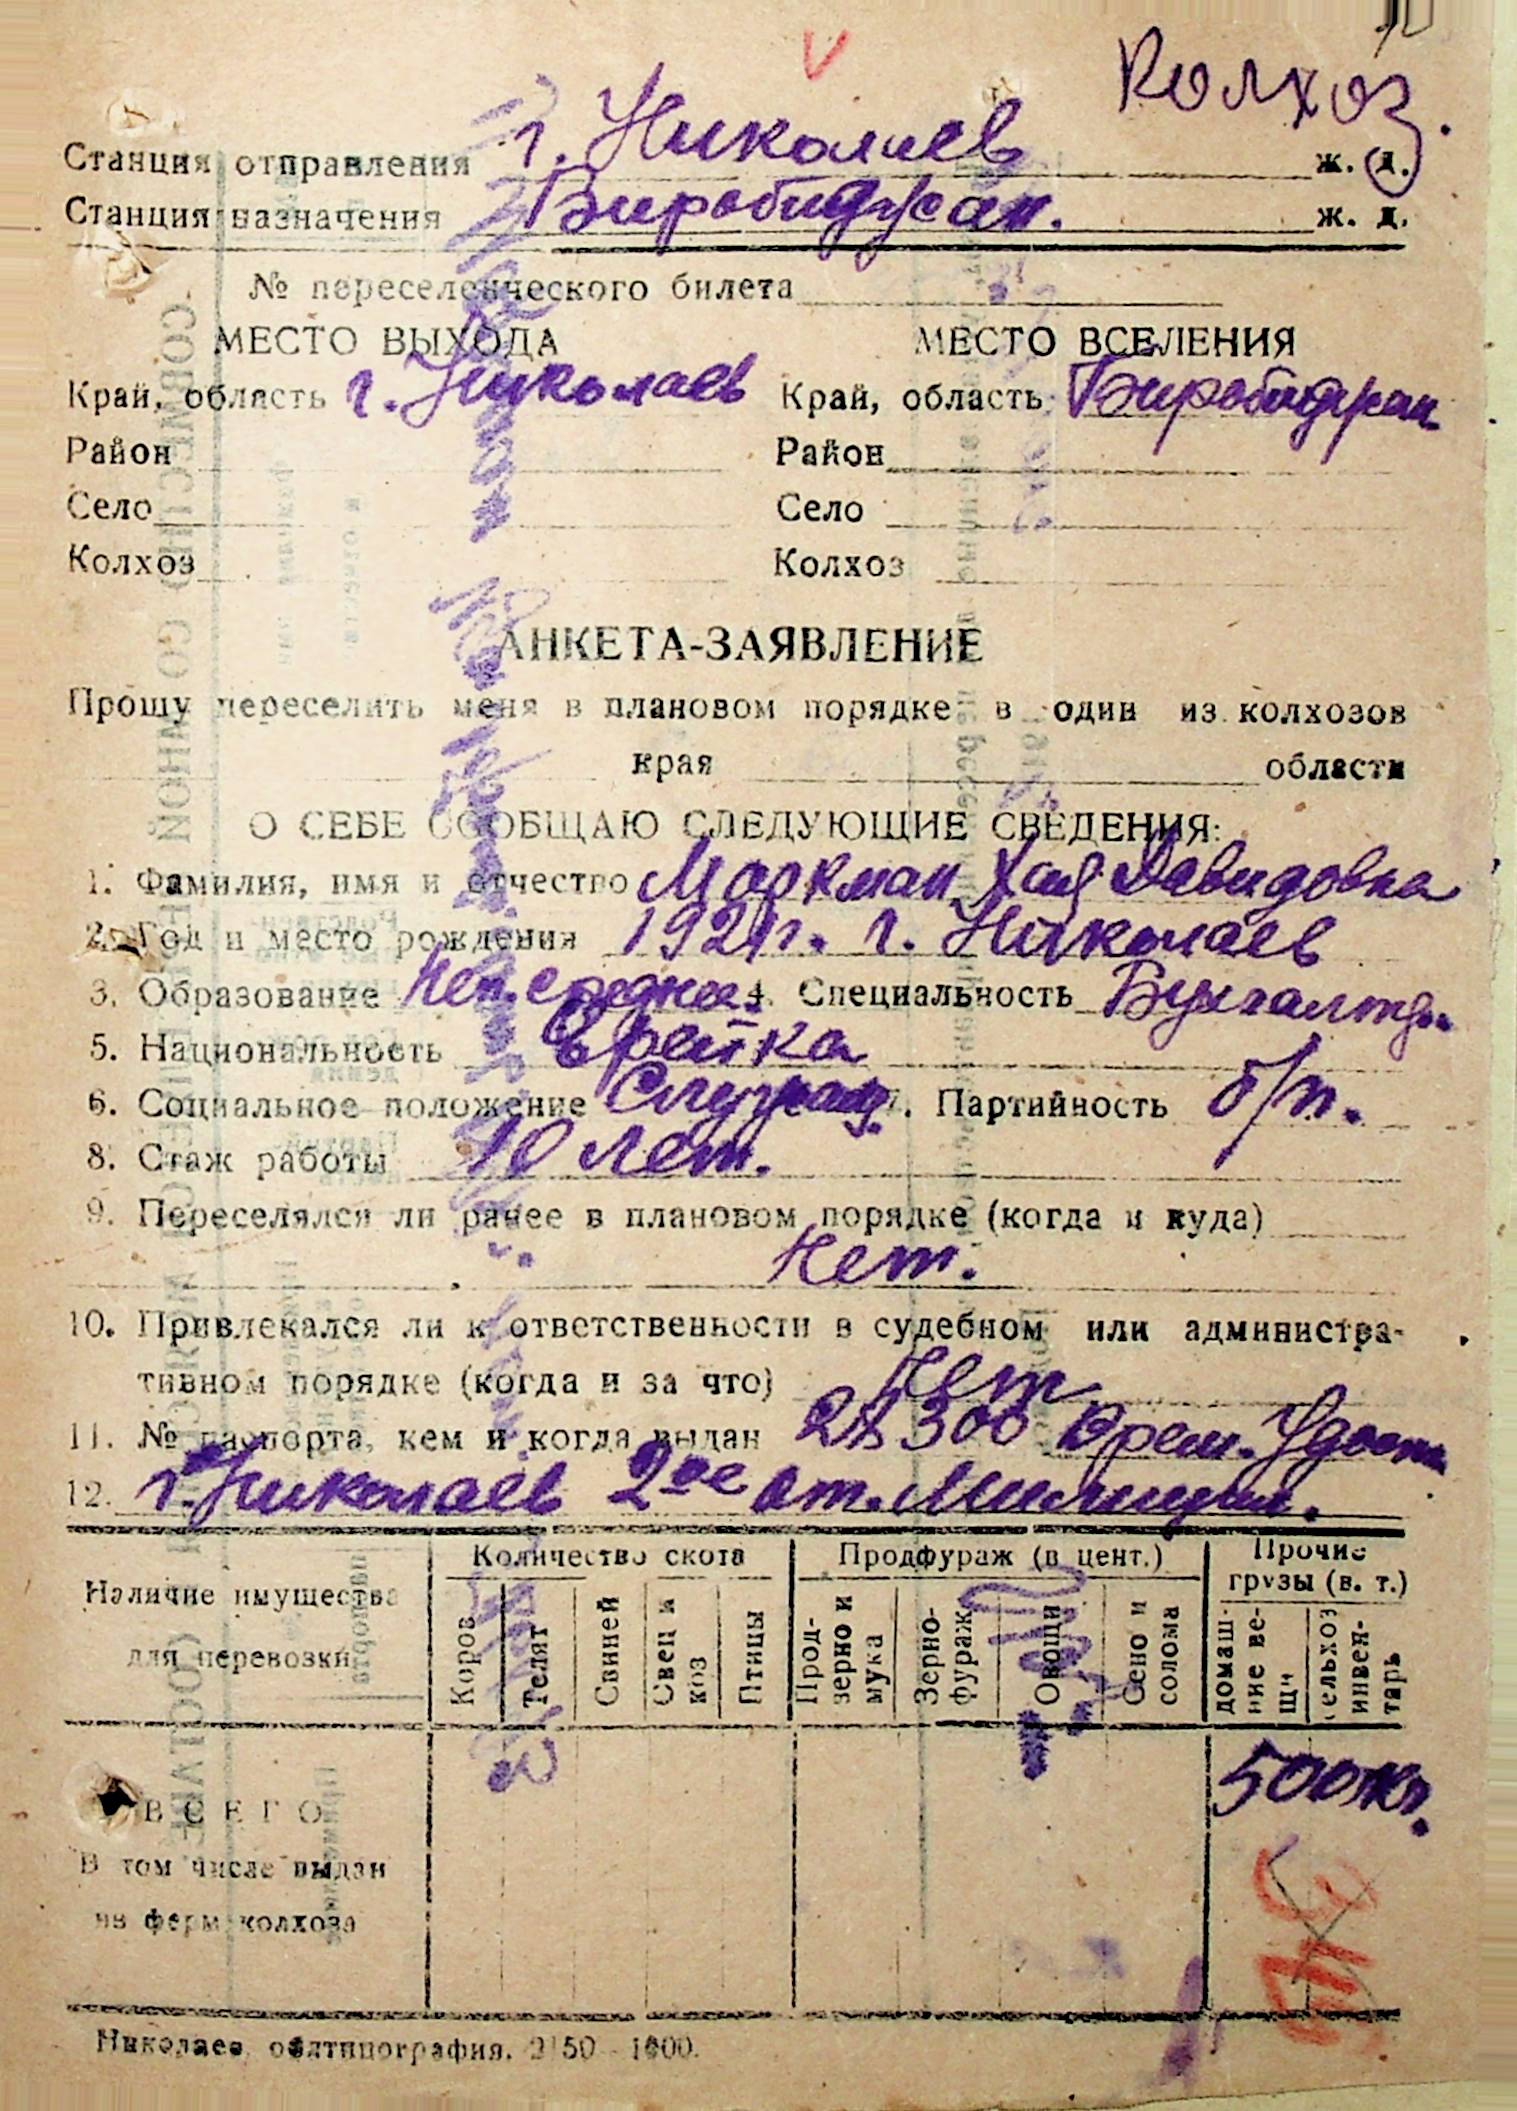 Колхоз.
Станция отправления г. Николаев ж. д.
Станция назначения Биробиджан. ж. д.
№ переселенческого билета
МЕСТО ВЫХОДА МЕСТО ВСЕЛЕНИЯ
Край, область г. Николаев Край, область Биробиджан
Район Район
Село Село
Колхоз Колхоз
АНКЕТА-ЗАЯВЛЕНИЕ
Прошу переселить меня в плановом порядке в один из колхозов
края области
О СЕБЕ СООБЩАЮ СЛЕДУЮЩИЕ СВЕДЕНИЯ:
1. Фамилия, имя и отчество Маркман Хая Давидовна
2. Год и место рождения 1921г. г. Николаев
3. Образование Неп. среднее 4. Специальность Бухгалтер.
5. Национальность Еврейка
6. Социальное положение Служащ. 7. Партийность б/п.
8. Стаж работы 10 лет.
9. Переселялся ли ранее в плановом порядке (когда и куда)
Нет.
10. Привлекался ли к ответственности в судебном или администра-
тивном порядке (когда и за что) Нет
11. № паспорта, кем и когда выдан 300 Врем. Удост.
12. г. Николаев 2ое от. Милиции.
Наличие имущества для перевозки
Количество скота Продфураж (в цент.) Прочие грузы (в. т.)
Коров Телят Свиней Овец и коз Птицы Прод-зерно и мука Зерно-фураж Овощи Сено и солома домаш-ние ве-щи сельхоз инвен-тарь
ВСЕГО 500 кг.
В том числе выдан
из ферм колхоза
Николаев, облтипография. 2150 - 1000.